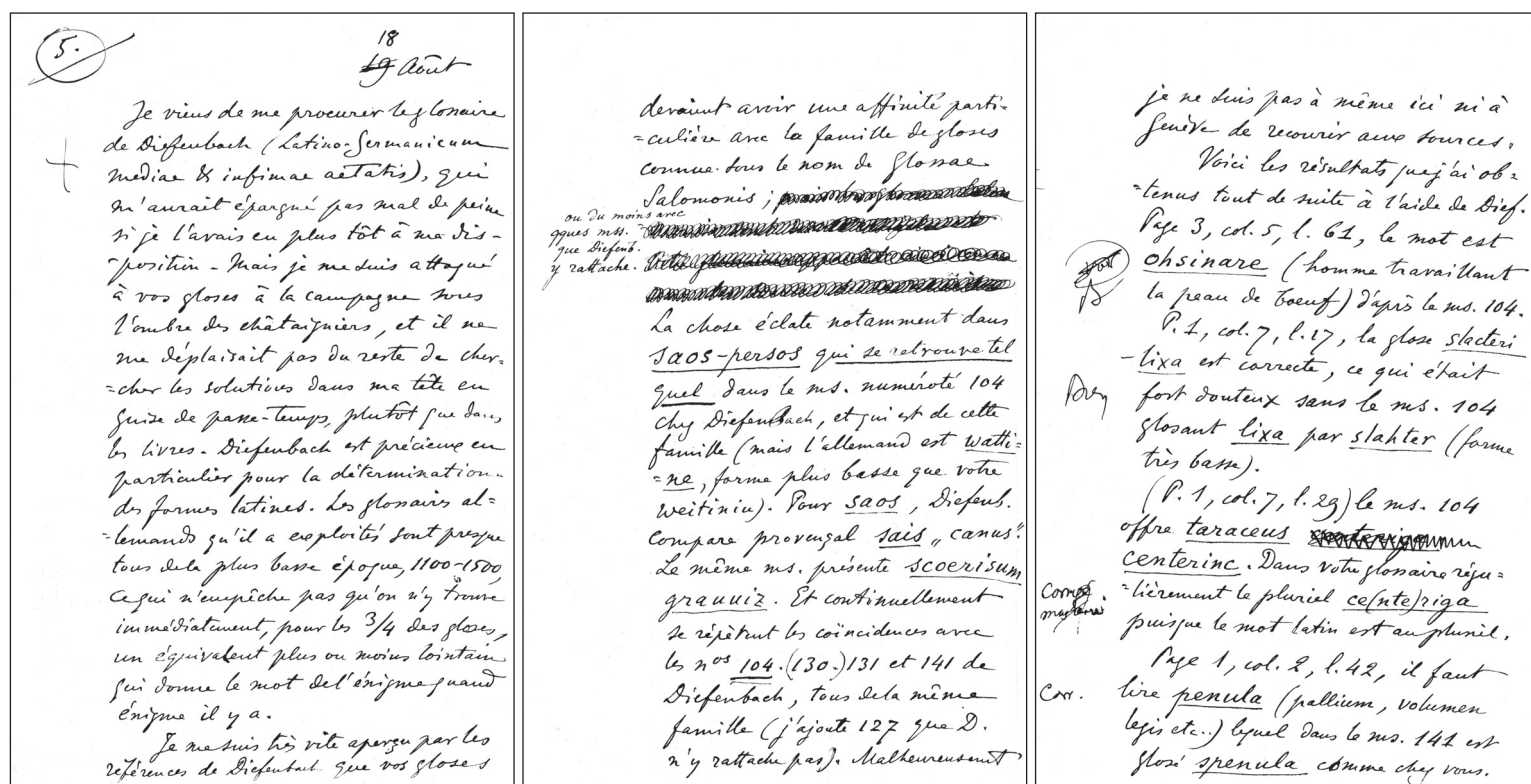 5.
18
19 Août
Je viens de me procurer le glossaire
de Diefenbach (Latino-Germanicum
mediae & infimae aetatis), qui
m'aurait épargné pas mal de peine
si je l'avais eu plus tôt à ma dis-
-position - Mais je me suis attaqué
à vos gloses à la campagne sous
l'ombre des châtaigniers, et il ne
me déplaisait pas du reste de cher=
=cher les solutions dans ma tête en
guise de passe-temps, plutôt que dans
les livres. Diefenbach est précieux en
particulier pour la détermination
des formes latines. Les glossaires al-
-lemands qu'il a exploités sont presque
tous de la plus basse époque, 1100-1500,
ce qui n'empêche pas qu'on n'y trouve
immédiatement, pour les 3/4 des gloses,
un équivalent plus ou moins lointain
qui donne le mot de l'énigme quand
énigme il y a.
Je me suis très vite aperçu par les
références de Diefenbach que vos gloses
devaient avoir une affinité parti=
=culière avec la famille de gloses
connue sous le nom de Glossae
Salomonis ;
ou du moins avec
qques mss.
que Diefenb.
y rattache.
La chose éclate notamment dans
saos-persos qui se retrouve tel
quel dans le ms. numéroté 104
chez Diefenbach, et qui est de cette
famille (mais l'allemand est watti=
=ne, forme plus basse que votre
weitiniu). Pour saos, Diefenb.
compare provençal sais „canus".
Le même ms. présente scoerisum
grauuiz. Et continuellement
se répètent les coïncidences avec
les nos 104. (130.) 131 et 141 de
Diefenbach, tous de la même
famille (j'ajoute 127 que D.
n'y rattache pas). Malheureusement
je ne suis pas à même ici ni à
Genève de recourir aux sources.
Voici les résultats que j'ai ob=
=tenus tout de suite à l'aide de Dief.
Page 3, col. 5, l. 61, le mot est
ohsinare (homme travaillant
la peau de boeuf) d'après le ms. 104.
P. 1, col. 7, l. 17, la glose slacteri
-lixa est correcte, ce qui était
fort douteux sans le ms. 104
glosant lixa par slahter (forme
très basse).
(P. 1, col. 7, l. 29) le ms. 104
offre taraceus
centerinc. Dans votre glossaire régu=
=lièrement le pluriel ce(nte)riga
puisque le mot latin est au pluriel.
Page 1, col. 2, l. 42, il faut
Corr.
lire penula (pallium, volumen
legis etc..) lequel dans le ms. 141 est
glosé spenula comme chez vous.